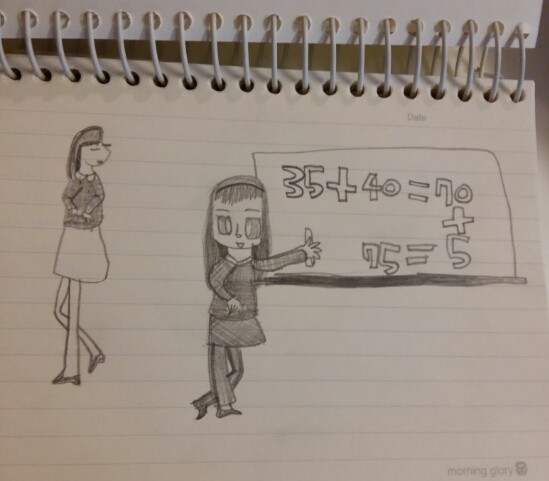 Date
35+40=70
+
75=5
morning glory